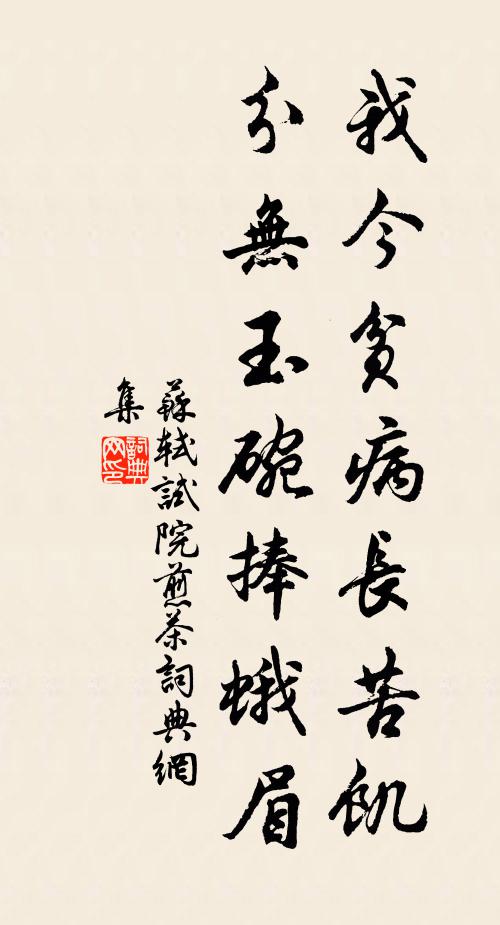 我今貧病長苦飢
分無玉碗捧蛾眉
蘇軾試院煎茶詞典網
集
詞典
网印